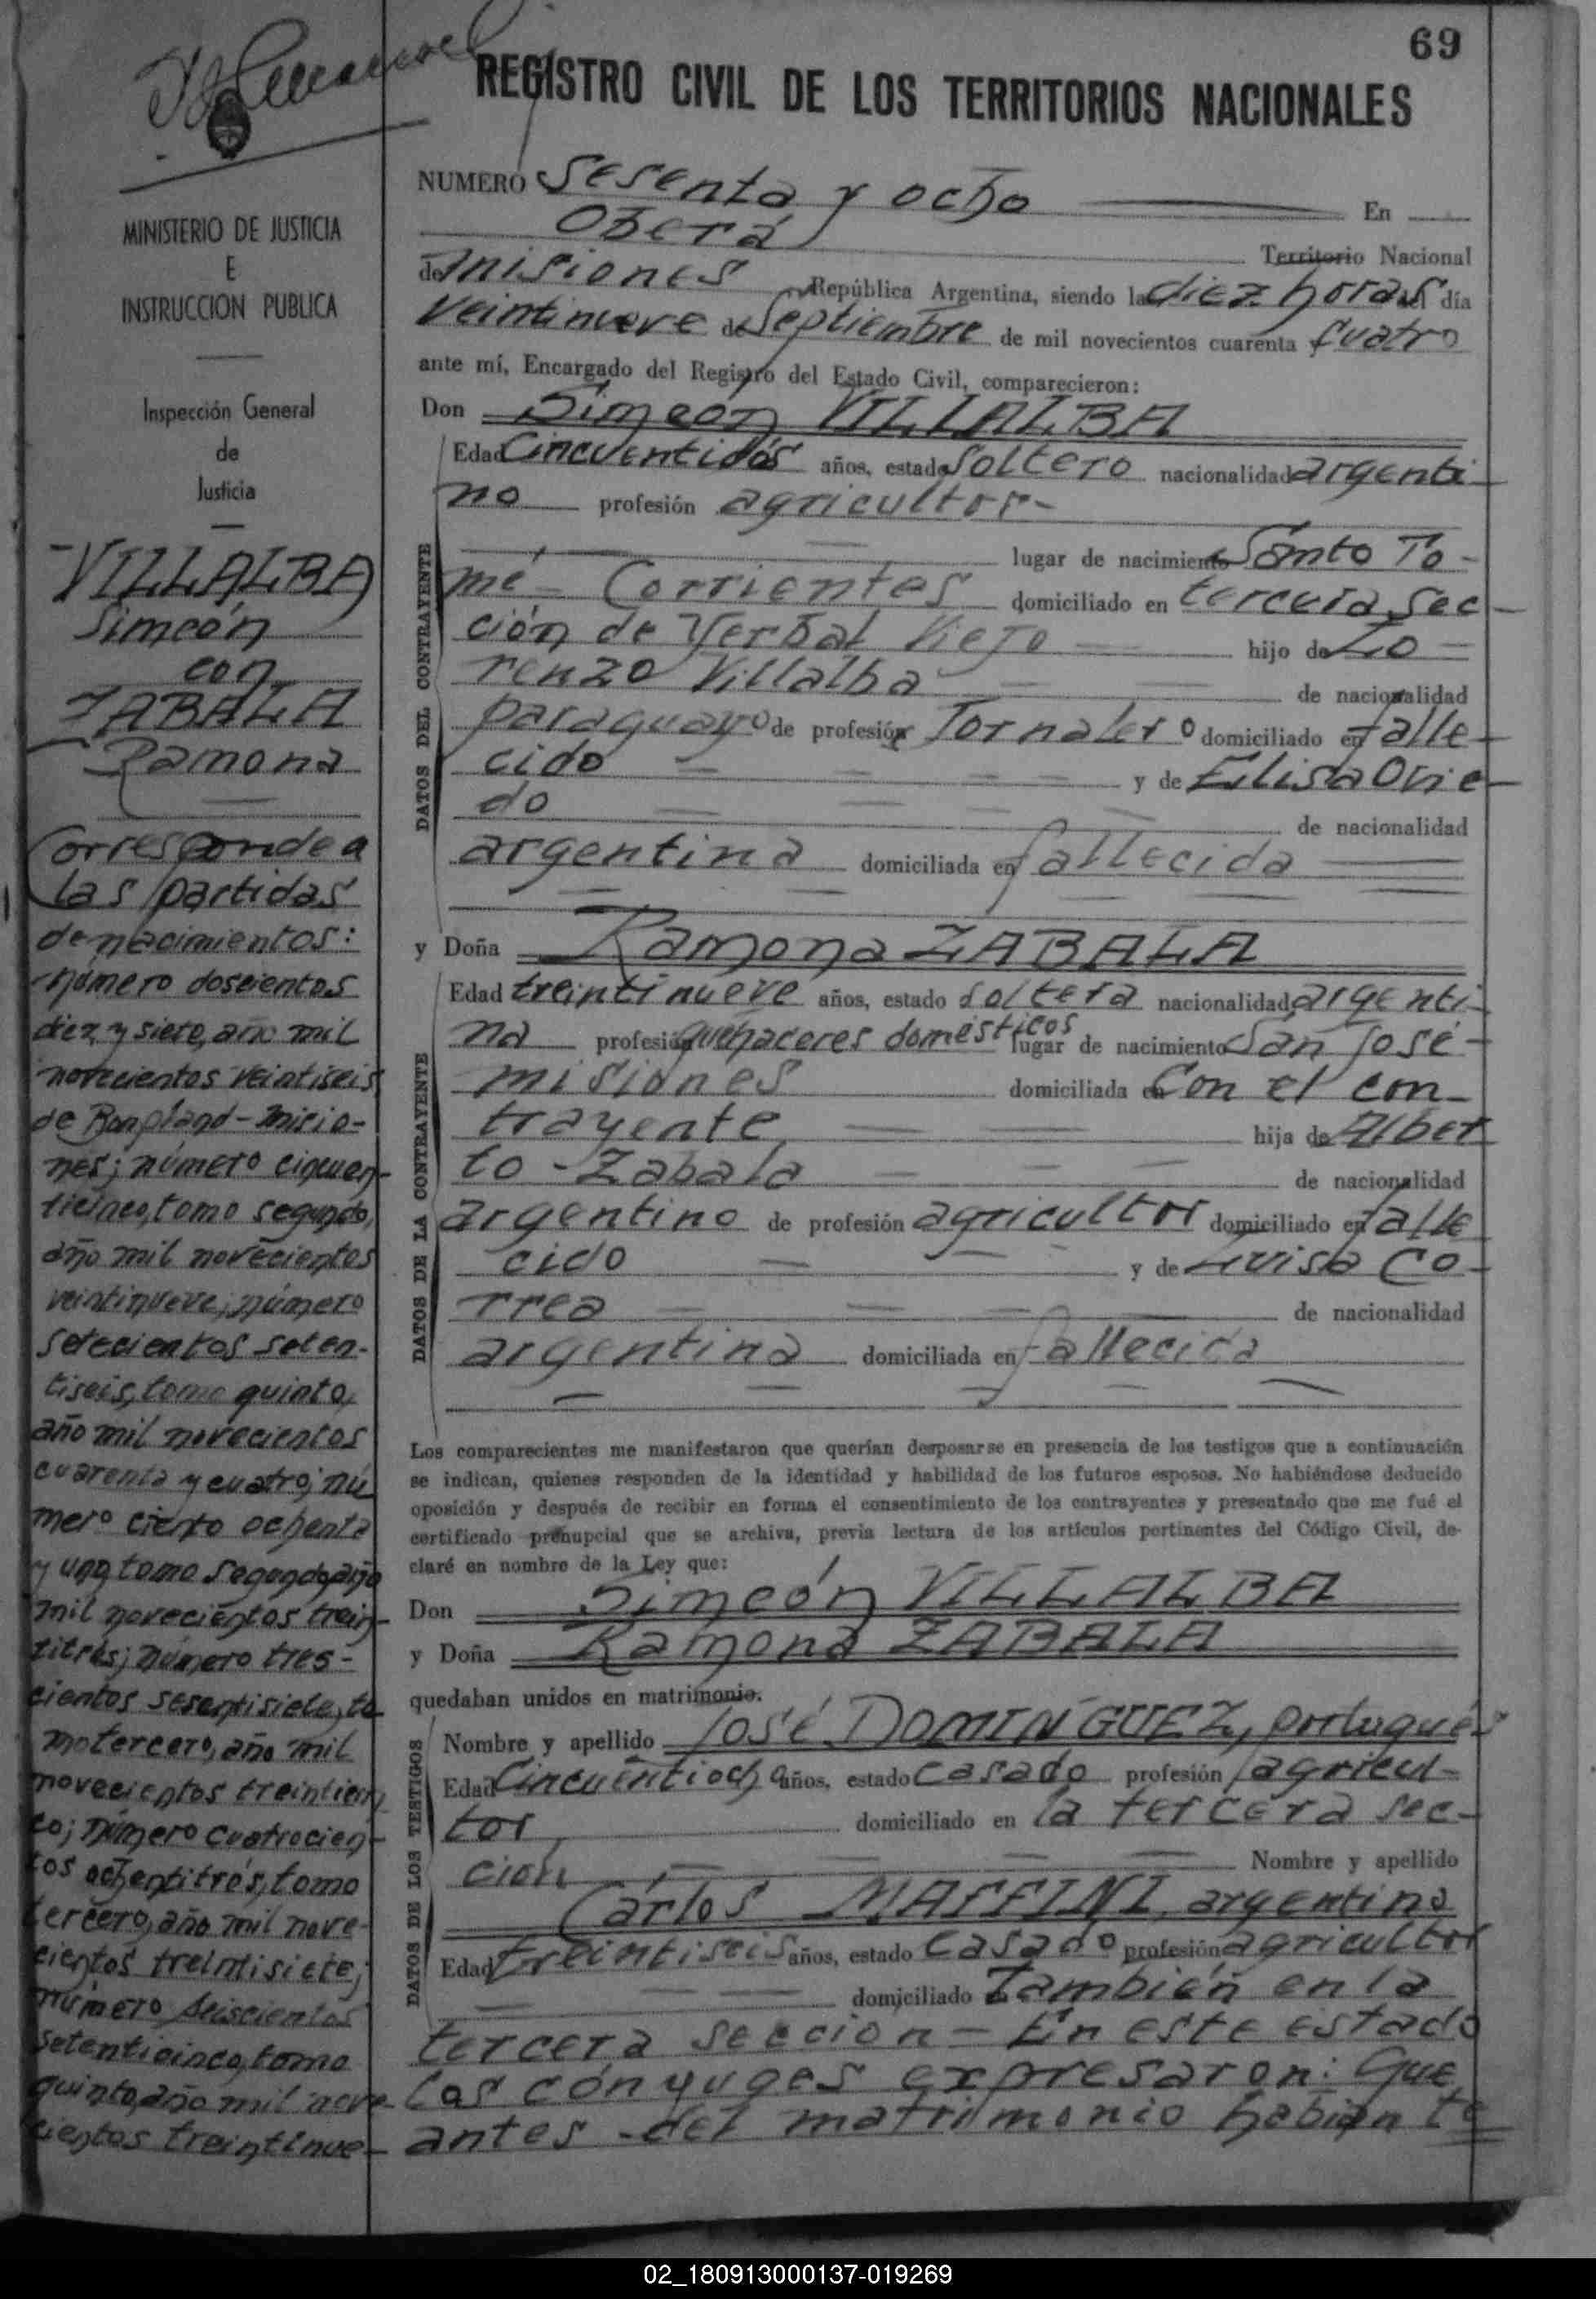 69
REGISTRO CIVIL DE LOS TERRITORIOS NACIONALES
MINISTERIO DE JUSTICIA
E
INSTRUCCION PUBLICA
Inspección General
de
Justicia
VILLALBA
Simeón
con
ZABALA
Ramona
Corresponde a
las partidas
de nacimientos:
número doscientos
diez y siete, año mil
novecientos veintiseis
de Bonpland - Misio-
nes; número cincuen-
ticinco, tomo segundo,
año mil novecientos
veintinueve; número
setecientos seten-
tiseis, tomo quinto,
año mil novecientos
cuarenta y cuatro; nú
mero ciento ochenta
y uno, tomo segundo, año
mil novecientos trein-
titrés; número tres-
cientos sesentisiete, to
mo tercero, año mil
novecientos treinticin
co; número cuatrocien-
tos ochentitrés, tomo
tercero, año mil nove-
cientos treintisiete;
número seiscientos
setenticinco, tomo
quinto, año mil nove-
cientos treintinue-
NUMERO Sesenta y ocho En
Oberá Territorio Nacional
de Misiones República Argentina, siendo las diez horas del día
veintinueve de Septiembre de mil novecientos cuarenta y cuatro
ante mí, Encargado del Registro del Estado Civil, comparecieron:
Don Simeón VILLALBA
DATOS DEL CONTRAYENTE
Edad Cincuentidós años, estado Soltero nacionalidad argenti-
no profesión agricultor-
lugar de nacimiento Santo To-
mé - Corrientes domiciliado en tercera sec-
ción de Yerbal Viejo hijo de Lo-
renzo Villalba de nacionalidad
paraguayo de profesión Jornalero domiciliado en falle-
cido y de Elisa Ovie-
do de nacionalidad
argentina domiciliada en fallecida
y Doña Ramona ZABALA
DATOS DE LA CONTRAYENTE
Edad treintinueve años, estado soltera nacionalidad argenti-
na profesión quehaceres domésticos lugar de nacimiento San José-
misiones domiciliada en Con el con-
trayente hija de Alber
to - Zabala de nacionalidad
argentino de profesión agricultor domiciliado en falle
cido y de Luisa Co-
rrea de nacionalidad
argentina domiciliada en fallecida
Los comparecientes me manifestaron que querían desposarse en presencia de los testigos que a continuación
se indican, quienes responden de la identidad y habilidad de los futuros esposos. No habiéndose deducido
oposición y después de recibir en forma el consentimiento de los contrayentes y presentado que me fué el
certificado prenupcial que se archiva, previa lectura de los artículos pertinentes del Código Civil, de-
claré en nombre de la Ley que:
Don Simeón VILLALBA
y Doña Ramona ZABALA
quedaban unidos en matrimonio.
DATOS DE LOS TESTIGOS
Nombre y apellido José DOMINGUEZ, portugués
Edad Cincuentiocho años, estado casado profesión agricul-
tor domiciliado en la tercera sec-
ción Nombre y apellido
Carlos MAFFINI, argentino
Edad treintiseis años, estado casado profesión agricultor
domiciliado también en la
tercera sección - En este estado
los cónyuges expresaron: Que
antes del matrimonio habían te
02_180913000137-019269